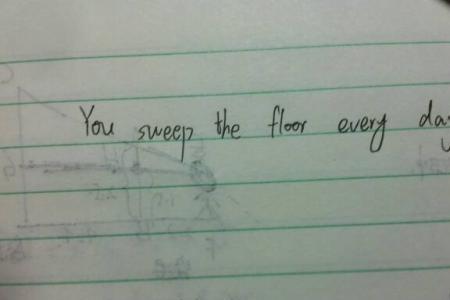 You sweep the floor every day